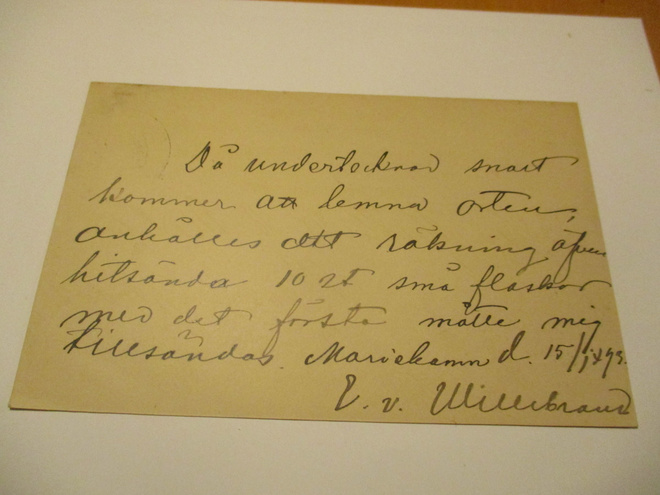 Då undertecknad snart
kommer att lemna orten,
anhålles att räkning öfver
hitsända 10 st små flaskor
med det första måtte mig
tillsändas. Mariehamn d. 15/
E. v. Willebrand